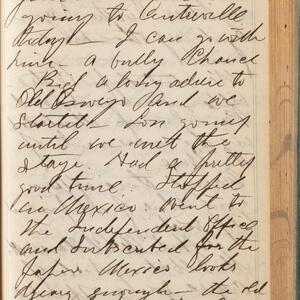 going to Centreville
today - I can go with
him - a bully chance
Bid a long adieu to
Old Oswego and we
started -
until we met the
stage. Had a pretty
good time. Stopped
in Mexico went to
the Independent Office
and Subscribed for the
paper. Mexico looks
enough - the old